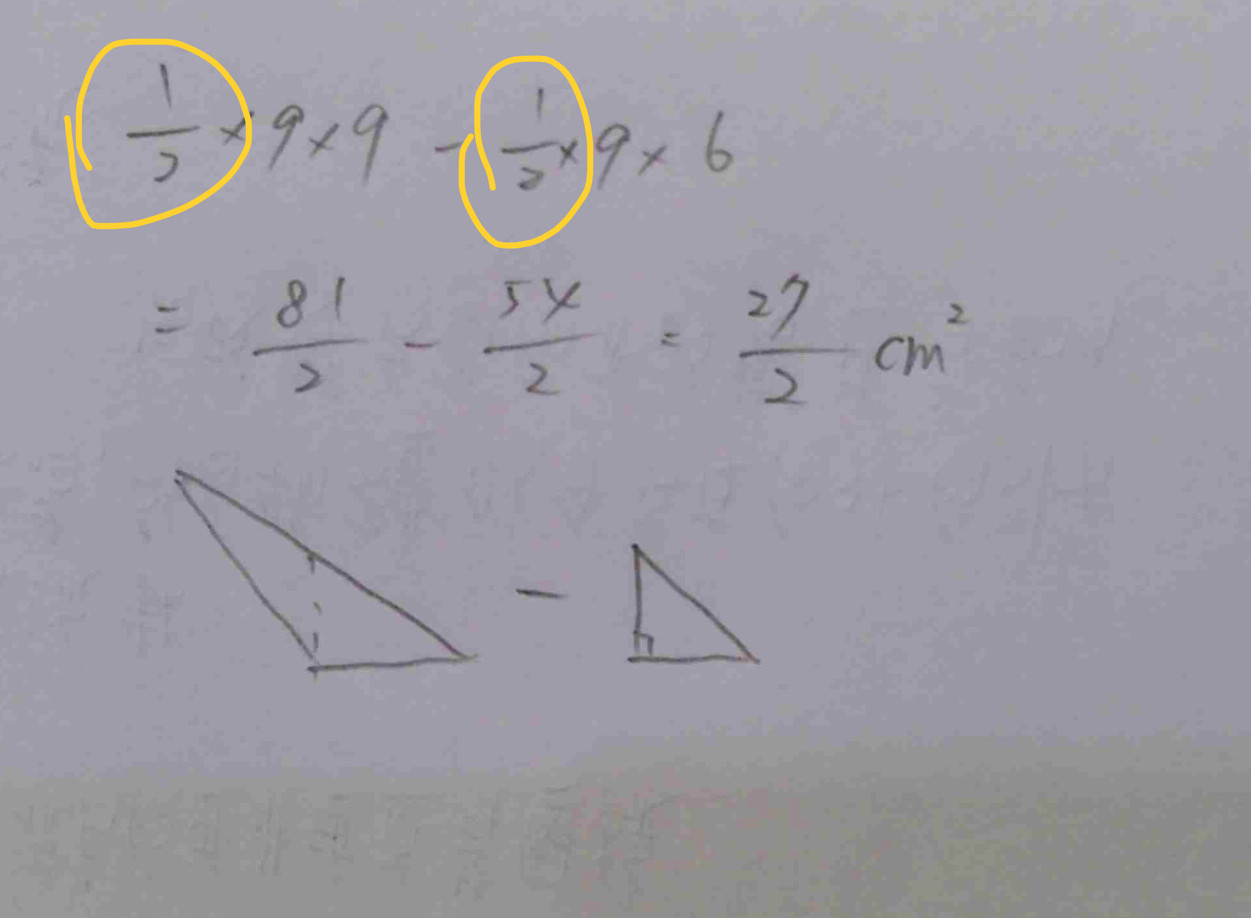 1/2 × 9 × 9 - 1/2 × 9 × 6
= 81/2 - 54/2 = 27/2 cm²
-